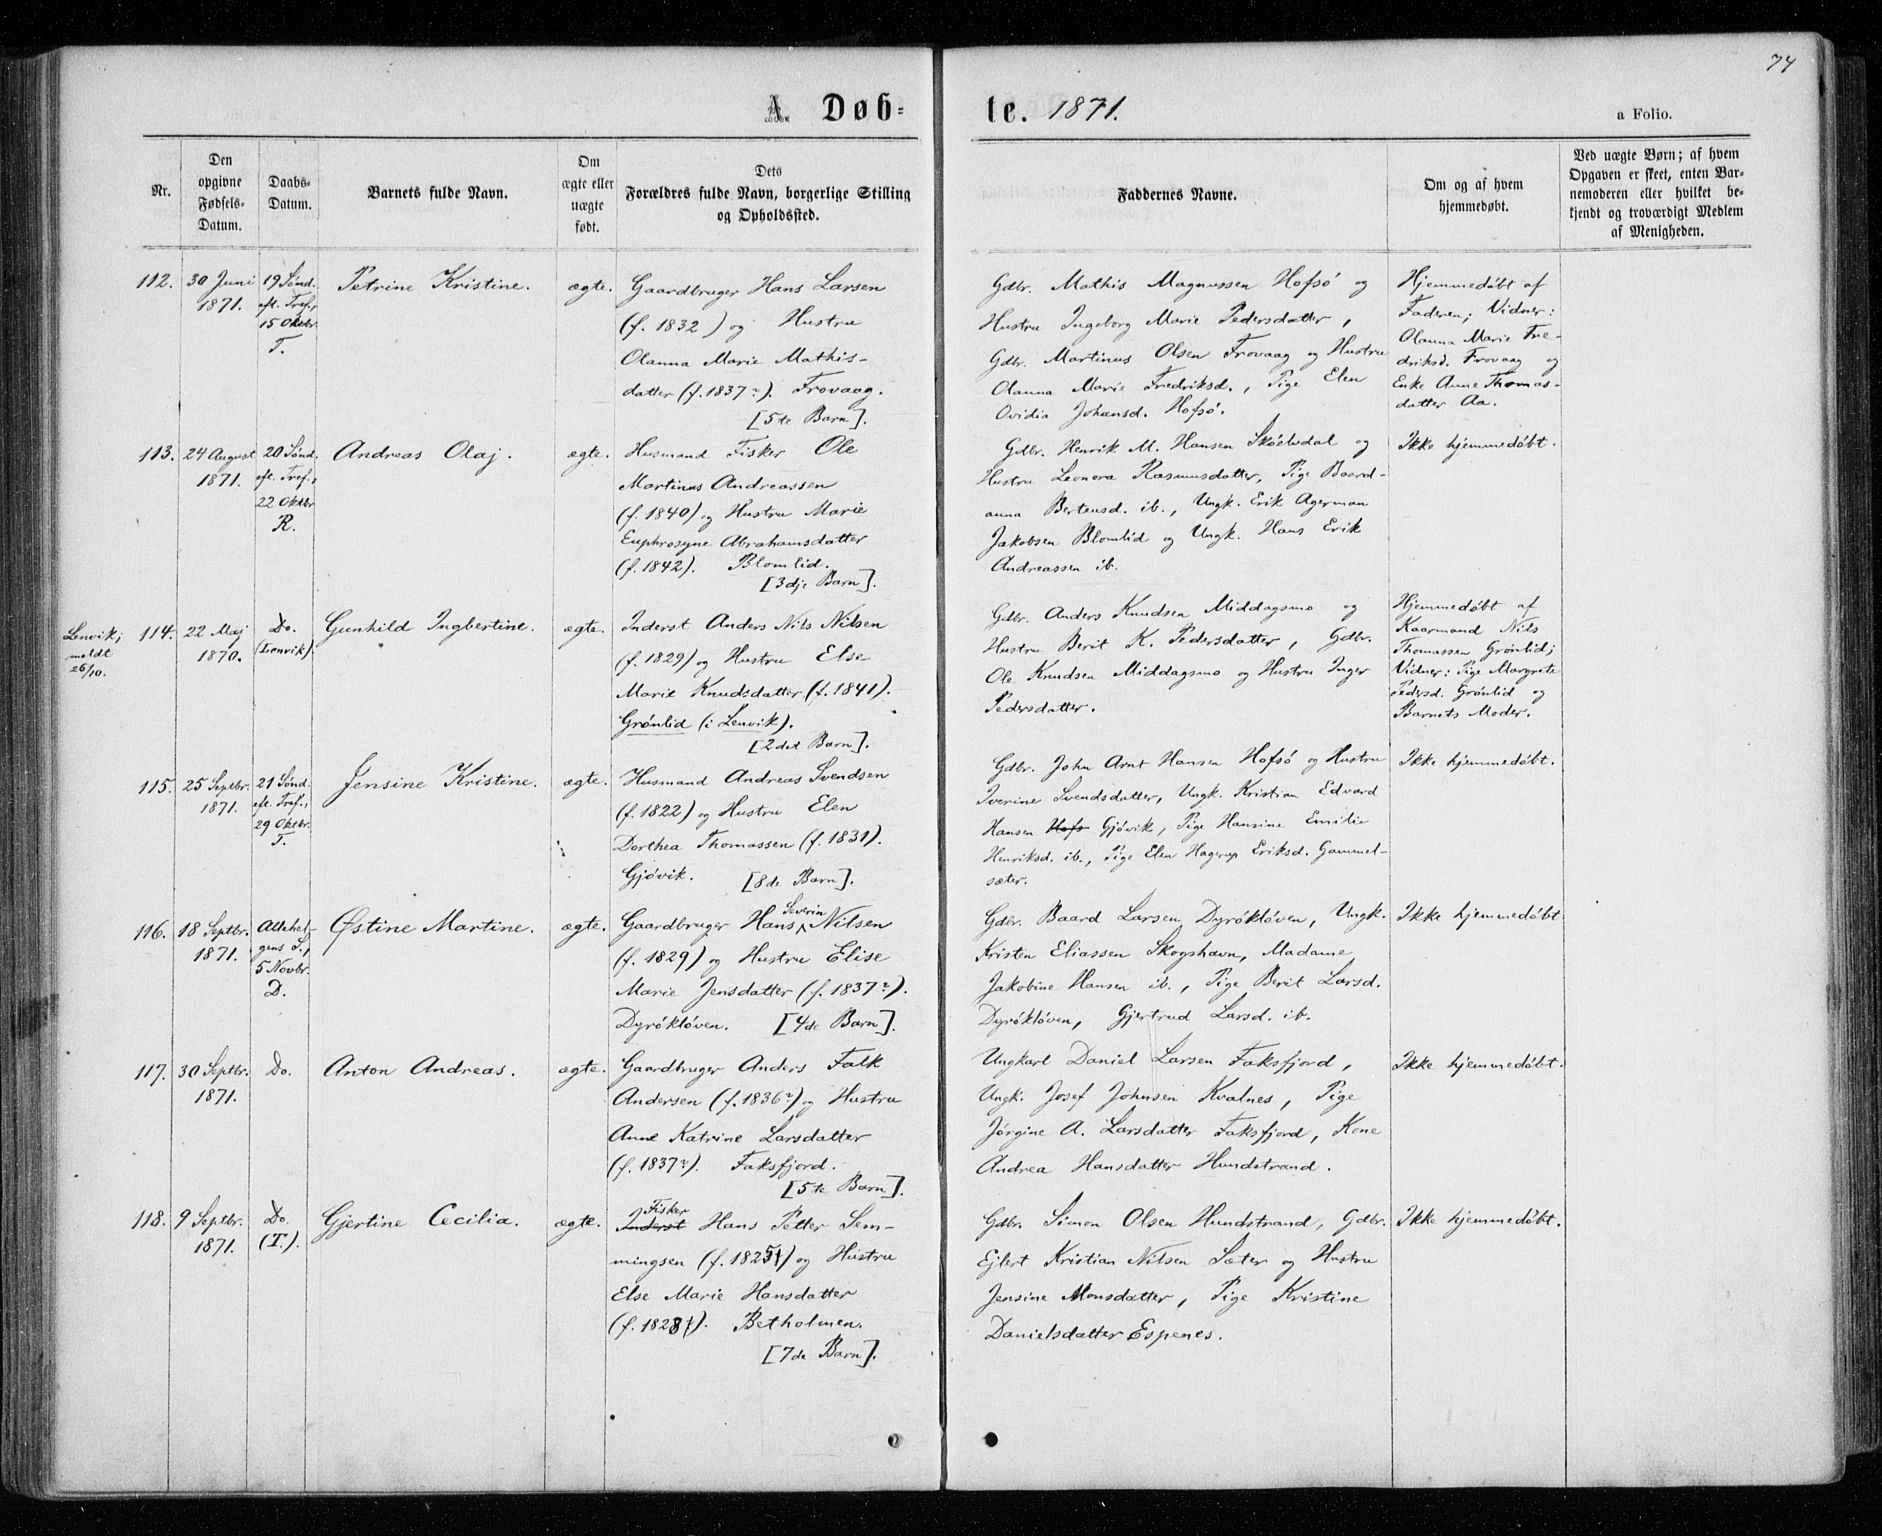 74
A. Døb=
te. 1871.
a Folio.
Nr.
Den
opgivne
Fødsels-
Datum.
Daabs-
Datum.
Barnets fulde Navn.
Om
ægte eller
uægte
født.
Dets
Forældres fulde Navn, borgerlige Stilling
og Opholdssted.
Faddernes Navne.
Om og af hvem
hjemmedøbt.
Ved uægte Børn; af hvem
Opgaven er skeet, enten Bar-
nemoderen eller hvilket be-
kjendt og troværdigt Medlem
af Menigheden.
112.
30 Juni
1871.
19 Sønd.
eft. Tref.,
15 Oktbr.
T.
Petrine Kristine.
ægte.
Gaardbruger Hans Larsen
(f. 1832) og Hustru
Olanna Marie Mathis-
datter (f. 1837?). Frovaag.
[5te Barn].
Gdbr. Mathis Magnussen Hofsø og
Hustru Ingeborg Marie Pedersdatter,
Gdbr. Martinus Olsen Frovaag og Hustru
Olanna Marie Fredriksd., Pige Elen
Ovidia Johansd. Hofsø.
Hjemmedøbt af
Faderen; Vidner:
Olanna Marie Fre-
driksd. Frovaag og
Enke Anne Thomas-
datter Aa.
113.
24 August
1871.
20 Sønd.
eft. Tref.,
22 Oktbr
R.
Andreas Olaj.
ægte.
Husmand Fisker Ole
Martinus Andreassen
(f. 1840) og Hustru Marie
Euphrosyne Abrahamsdatter
(f. 1842). Blomlid.
[3dje Barn].
Gdbr. Henrik M. Hansen Skøelvdal og
Hustru Leonora Rasmusdatter, Pige Baard-
anna Bertensd. ib., Ungk. Erik Agerman
Jakobsen Blomlid og Ungk. Hans Erik
Andreassen ib.
Ikke hjemmedøbt.
Lenvik;
meldt
26/10.
114.
22 Maj
1870.
Do.
(Lenvik).
Gunhild Ingbertine.
ægte.
Inderst Anders Nils Nilsen
(f. 1829) og Hustru Else
Marie Knudsdatter (f. 1841).
Grønlid (i Lenvik).
[2det Barn].
Gdbr. Anders Knudsen Middagsmo og
Hustru Berit K. Pedersdatter, Gdbr.
Ole Knudsen Middagsmo og Hustru Inger
Pedersdatter.
Hjemmedøbt af
Kaarmand Nils
Thomassen Grønlid;
Vidner: Pige Margrete
Pedersd. Grønlid og
Barnets Moder.
115.
25 Septbr.
1871.
21 Sønd.
eft. Tref.,
29 Oktbr.
T.
Jensine Kristine.
ægte.
Husmand Andreas Svendsen
(f. 1822) og Hustru Elen
Dorthea Thomassen (f. 1831).
Gjøvik. [8de Barn].
Gdbr. John Arnt Hansen Hofsø og Hustru
Iverine Svendsdatter, Ungk. Kristian Edvard
Hansen Hofs Gjøvik, Pige Hansine Emilie
Henriksd. ib., Pige Elen Hagerup Eriksd. Gammel-
sæter.
Ikke hjemmedøbt.
116.
18 Septbr.
1871.
Allehel-
gens S.,
5 Novbr.
D.
Østine Martine.
ægte.
Severin
Gaardbruger Hans Nilsen
(f. 1829) og Hustru Elise
Marie Jensdatter (f. 1837?).
Dyrøkløven. [4de Barn].
Gdbr. Baard Larsen Dyrøkløven, Ungk.
Kristen Eliassen Skogshavn, Madame
Jakobine Hansen ib., Pige Berit Larsd.
Dyrøkløven, Gjertrud Larsd. ib.
Ikke hjemmedøbt
117.
30 Septbr.
1871.
Do.
Anton Andreas.
ægte.
Gaardbruger Anders Falk
Andersen (f. 1836?) og Hustru
Anne Katrine Larsdatter
(f. 1837?). Faksfjord.
[5te Barn].
Ungkarl Daniel Larsen Faksfjord,
Ungk. Josef Johnsen Kvalnes, Pige
Jørgine A. Larsdatter Faksfjord, Kone
Andrea Hansdatter Hundstrand.
Ikke hjemmedøbt.
118.
9 Septbr.
1871.
Do.
(T.).
Gjertine Cecilia.
ægte.
Fisker
Inderst Hans Petter Sem-
mingsen (f. 1825) og Hustru
Else Marie Hansdatter
(f. 1828). Betholmen.
[7de Barn].
Gdbr. Simon Olsen Hundstrand, Gdbr.
Ejlert Kristian Nilsen Sæter og Hustru
Jensine Monsdatter, Pige Kristine
Danielsdatter Espenes.
Ikke hjemmedøbt.